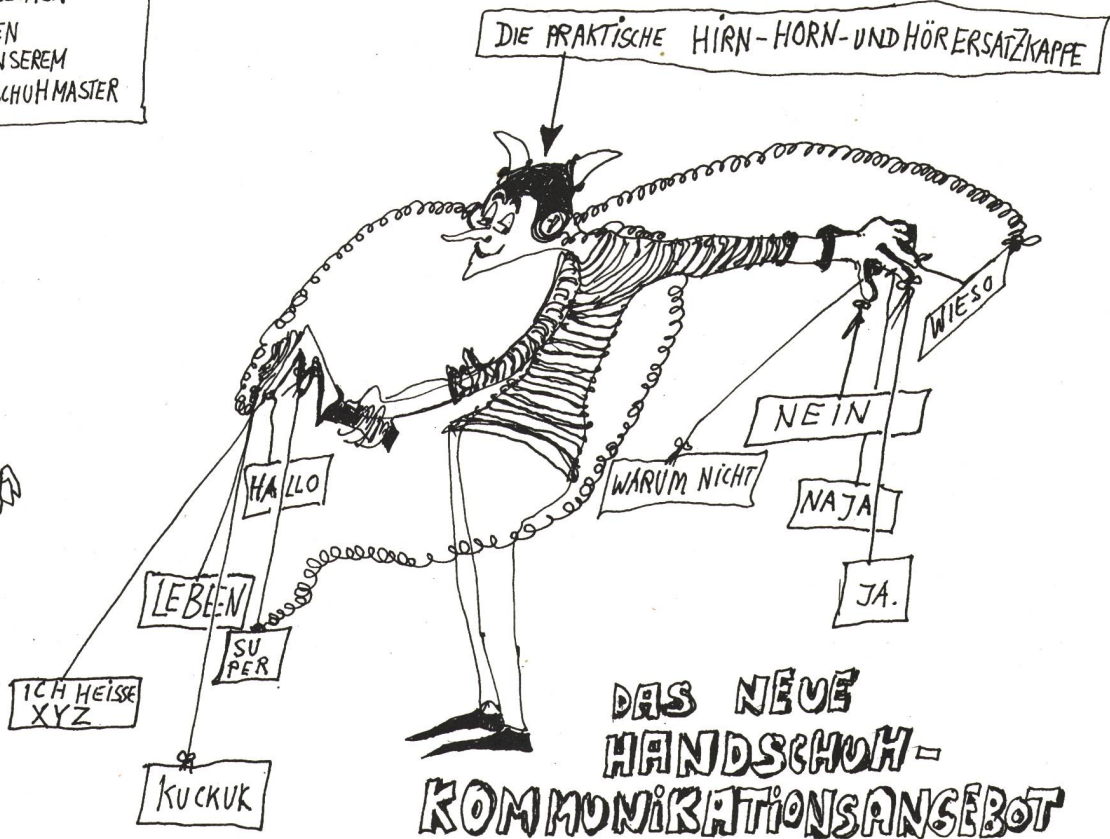 EN
SEREM
SCHUHMASTER
DIE PRAKTISCHE HIRN-HORN-UND HÖRERSATZKAPPE
WIESO
NEIN
WARUM NICHT
NAJA
JA.
HALLO
LEBEEN
SU
PER
ICH HEISSE
XYZ
KUCKUK
DAS NEUE
HANDSCHUH-
KOMMUNIKATIONSANGEBOT